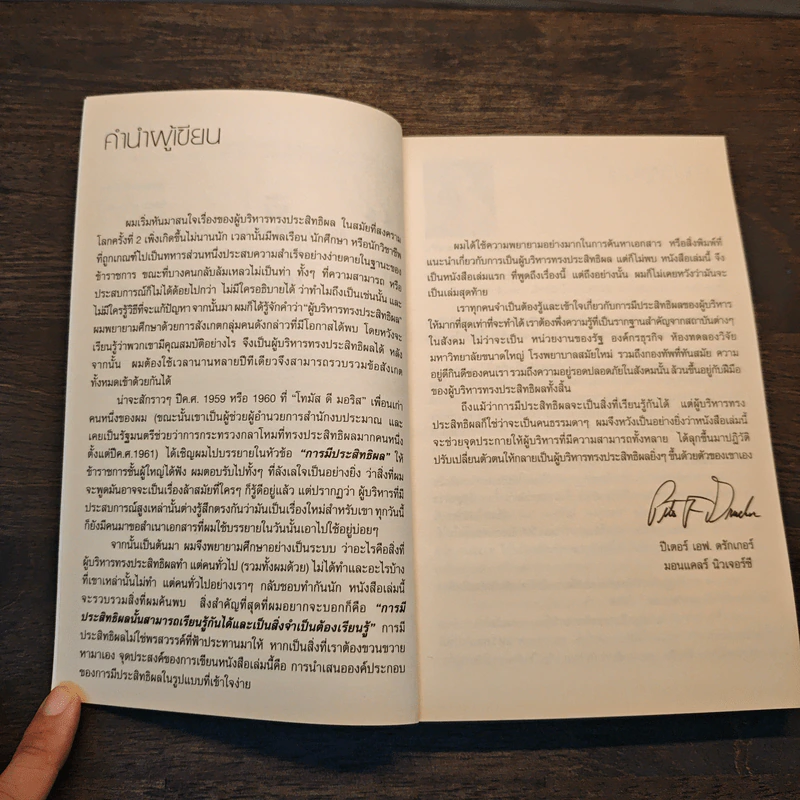 คำนำผู้เขียน
ผมเริ่มหันมาสนใจเรื่องของผู้บริหารทรงประสิทธิผล ในสมัยที่สงคราม
โลกครั้งที่ 2 เพิ่งเกิดขึ้นไม่นานนัก เวลานั้นมีพลเรือน นักศึกษา หรือนักวิชาชีพ
ที่ถูกเกณฑ์ไปเป็นทหารส่วนหนึ่งประสบความสำเร็จอย่างง่ายดายในฐานะของ
ข้าราชการ ขณะที่บางคนกลับล้มเหลวไม่เป็นท่า ทั้งๆ ที่ความสามารถ หรือ
ประสบการณ์ก็ไม่ได้ด้อยไปกว่า ไม่มีใครอธิบายได้ ว่าทำไมถึงเป็นเช่นนั้น และ
ไม่มีใครรู้วิธีที่จะแก้ปัญหา จากนั้นมา ผมก็ได้รู้จักคำว่า "ผู้บริหารทรงประสิทธิผล"
ผมพยายามศึกษาด้วยการสังเกตกลุ่มคนดังกล่าวที่มีโอกาสได้พบ โดยหวังจะ
เรียนรู้ว่าพวกเขามีคุณสมบัติอย่างไร จึงเป็นผู้บริหารทรงประสิทธิผลได้ หลัง
จากนั้น ผมต้องใช้เวลานานหลายปีทีเดียวจึงสามารถรวบรวมข้อสังเกต
ทั้งหมดเข้าด้วยกันได้
น่าจะสักราวๆ ปีค.ศ. 1959 หรือ 1960 ที่ "โทมัส ดี มอริส" เพื่อนเก่า
คนหนึ่งของผม (ขณะนั้นเขาเป็นผู้ช่วยผู้อำนวยการสำนักงบประมาณ และ
เคยเป็นรัฐมนตรีช่วยว่าการกระทรวงกลาโหมที่ทรงประสิทธิผลมากคนหนึ่ง
ตั้งแต่ปีค.ศ.1961) ได้เชิญผมไปบรรยายในหัวข้อ "การมีประสิทธิผล" ให้
ข้าราชการชั้นผู้ใหญ่ได้ฟัง ผมตอบรับไปทั้งๆ ที่ลังเลใจเป็นอย่างยิ่ง ว่าสิ่งที่ผม
จะพูดมันอาจจะเป็นเรื่องล้าสมัยที่ใครๆ ก็รู้ดีอยู่แล้ว แต่ปรากฏว่า ผู้บริหารที่มี
ประสบการณ์สูงเหล่านั้นต่างรู้สึกตรงกันว่ามันเป็นเรื่องใหม่สำหรับเขา ทุกวันนี้
ก็ยังมีคนมาขอสำเนาเอกสารที่ผมใช้บรรยายในวันนั้นเอาไปใช้อยู่บ่อยๆ
จากนั้นเป็นต้นมา ผมจึงพยายามศึกษาอย่างเป็นระบบ ว่าอะไรคือสิ่งที่
ผู้บริหารทรงประสิทธิผลทำ แต่คนทั่วไป (รวมทั้งผมด้วย) ไม่ได้ทำและอะไรบ้าง
ที่เขาเหล่านั้นไม่ทำ แต่คนทั่วไปอย่างเราๆ กลับชอบทำกันนัก หนังสือเล่มนี้
จะรวบรวมสิ่งที่ผมค้นพบ สิ่งสำคัญที่สุดที่ผมอยากจะบอกก็คือ "การมี
ประสิทธิผลนั้นสามารถเรียนรู้กันได้และเป็นสิ่งจำเป็นต้องเรียนรู้" การมี
ประสิทธิผลไม่ใช่พรสวรรค์ที่ฟ้าประทานมาให้ หากเป็นสิ่งที่เราต้องขวนขวาย
หามาเอง จุดประสงค์ของการเขียนหนังสือเล่มนี้คือ การนำเสนอองค์ประกอบ
ของการมีประสิทธิผลในรูปแบบที่เข้าใจง่าย
ผมได้ใช้ความพยายามอย่างมากในการค้นหาเอกสาร หรือสิ่งพิมพ์ที่
แนะนำเกี่ยวกับการเป็นผู้บริหารทรงประสิทธิผล แต่ก็ไม่พบ หนังสือเล่มนี้ จึง
เป็นหนังสือเล่มแรก ที่พูดถึงเรื่องนี้ แต่ถึงอย่างนั้น ผมก็ไม่เคยหวังว่ามันจะ
เป็นเล่มสุดท้าย
เราทุกคนจำเป็นต้องรู้และเข้าใจเกี่ยวกับการมีประสิทธิผลของผู้บริหาร
ให้มากที่สุดเท่าที่จะทำได้ เราต้องพึ่งความรู้ที่เป็นรากฐานสำคัญจากสถาบันต่างๆ
ในสังคม ไม่ว่าจะเป็น หน่วยงานของรัฐ องค์กรธุรกิจ ห้องทดลองวิจัย
มหาวิทยาลัยขนาดใหญ่ โรงพยาบาลสมัยใหม่ รวมถึงกองทัพที่ทันสมัย ความ
อยู่ดีกินดีของคนเรา รวมถึงความอยู่รอดปลอดภัยในสังคมนั้น ล้วนขึ้นอยู่กับฝีมือ
ของผู้บริหารทรงประสิทธิผลทั้งสิ้น
ถึงแม้ว่าการมีประสิทธิผลจะเป็นสิ่งที่เรียนรู้กันได้ แต่ผู้บริหารทรง
ประสิทธิผลก็ใช่ว่าจะเป็นคนธรรมดาๆ ผมจึงหวังเป็นอย่างยิ่งว่าหนังสือเล่มนี้
จะช่วยจุดประกายให้ผู้บริหารที่มีความสามารถทั้งหลาย ได้ลุกขึ้นมาปฏิวัติ
ปรับเปลี่ยนตัวตนให้กลายเป็นผู้บริหารทรงประสิทธิผลยิ่งๆ ขึ้นด้วยตัวของเขาเอง
Peter F Drucker
ปีเตอร์ เอฟ. ดรักเกอร์
มอนแคลร์ นิวเจอร์ซี